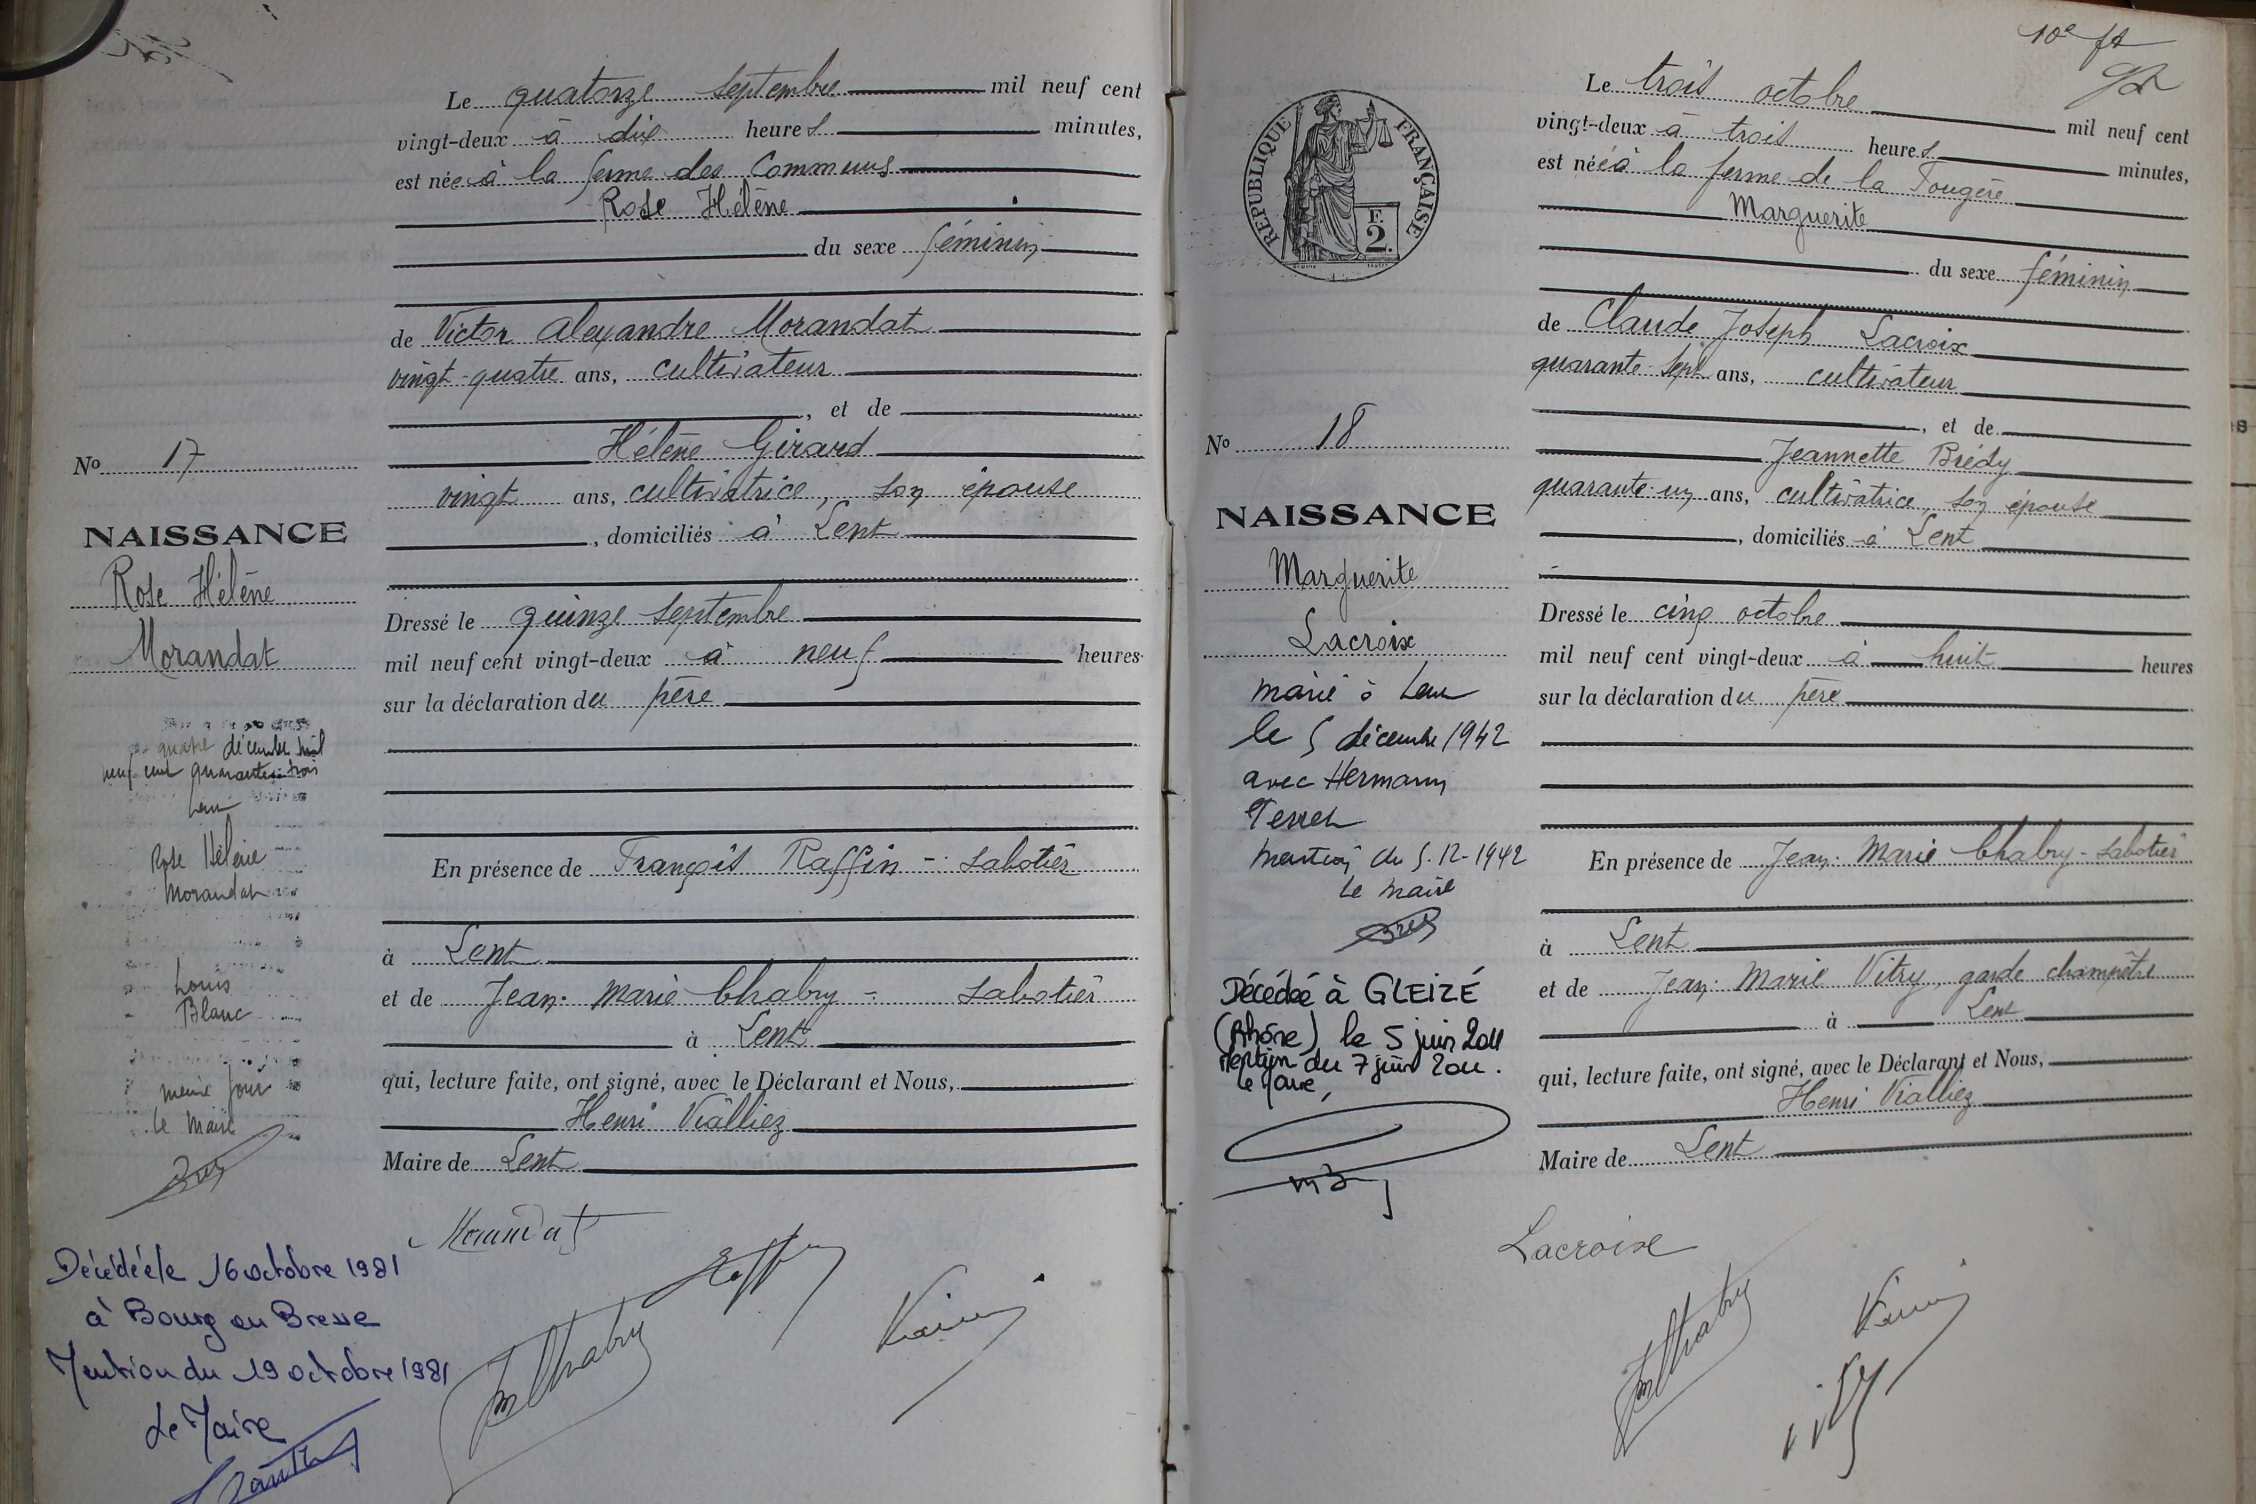 Le quatorze septembre mil neuf cent
vingt-deux à dix heures minutes,
est née à la ferme des Communs
Rose Hélène
du sexe féminin
de Victor Alexandre Morandat
vingt-quatre ans, cultivateur
, et de
Hélène Girard
vingt ans, cultivatrice, son épouse
, domiciliés à Lent
Dressé le quinze septembre
mil neuf cent vingt-deux à neuf heures
sur la déclaration du père
En présence de François Raffin - sabotier
à Lent
et de Jean-Marie Chabry - sabotier
à Lent
qui, lecture faite, ont signé, avec le Déclarant et Nous,
Henri Vialliez
Maire de Lent
Morandat
JMChabry
No 17
NAISSANCE
Rose Hélène
Morandat
quatre décembre mil
neuf cent quarante-trois
Lent
Rose Hélène
Morandat
Louis
Blanc
même jour
Le Maire
Décédée le 16 octobre 1981
à Bourg en Bresse
Mention du 19 octobre 1981
Le Maire
10e ft
RÉPUBLIQUE FRANÇAISE
F.
2.
Le trois octobre mil neuf cent
vingt-deux à trois heures minutes,
est née à la ferme de la Fougère
Marguerite
du sexe féminin
de Claude Joseph Lacroix
quarante-sept ans, cultivateur
, et de
Jeannette Brédy
quarante-un ans, cultivatrice, son épouse
, domiciliés à Lent
Dressé le cinq octobre
mil neuf cent vingt-deux à huit heures
sur la déclaration du père
En présence de Jean-Marie Chabry - sabotier
à Lent
et de Jean-Marie Vitry, garde champêtre
à Lent
qui, lecture faite, ont signé, avec le Déclarant et Nous,
Henri Vialliez
Maire de Lent
Lacroix
JMChabry
No 18
NAISSANCE
Marguerite
Lacroix
marié à Lent
le 5 décembre 1942
avec Hermann
mention du 5-12-1942
Le Maire
Décédée à GLEIZÉ
(Rhône) le 5 juin 2011
Mention du 7 juin 2011.
Le Maire,